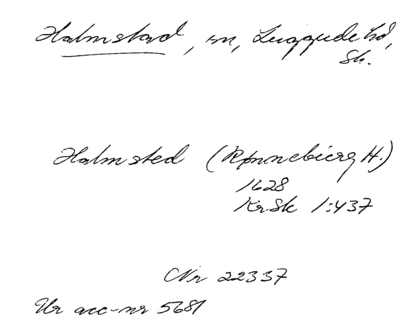 Halmstad, sn, Luggude hd,
Sk.
Halmsted (Rønnebierg H.)
1628
KrSk 1:437
Nr 22337
Ur acc-nr 5681